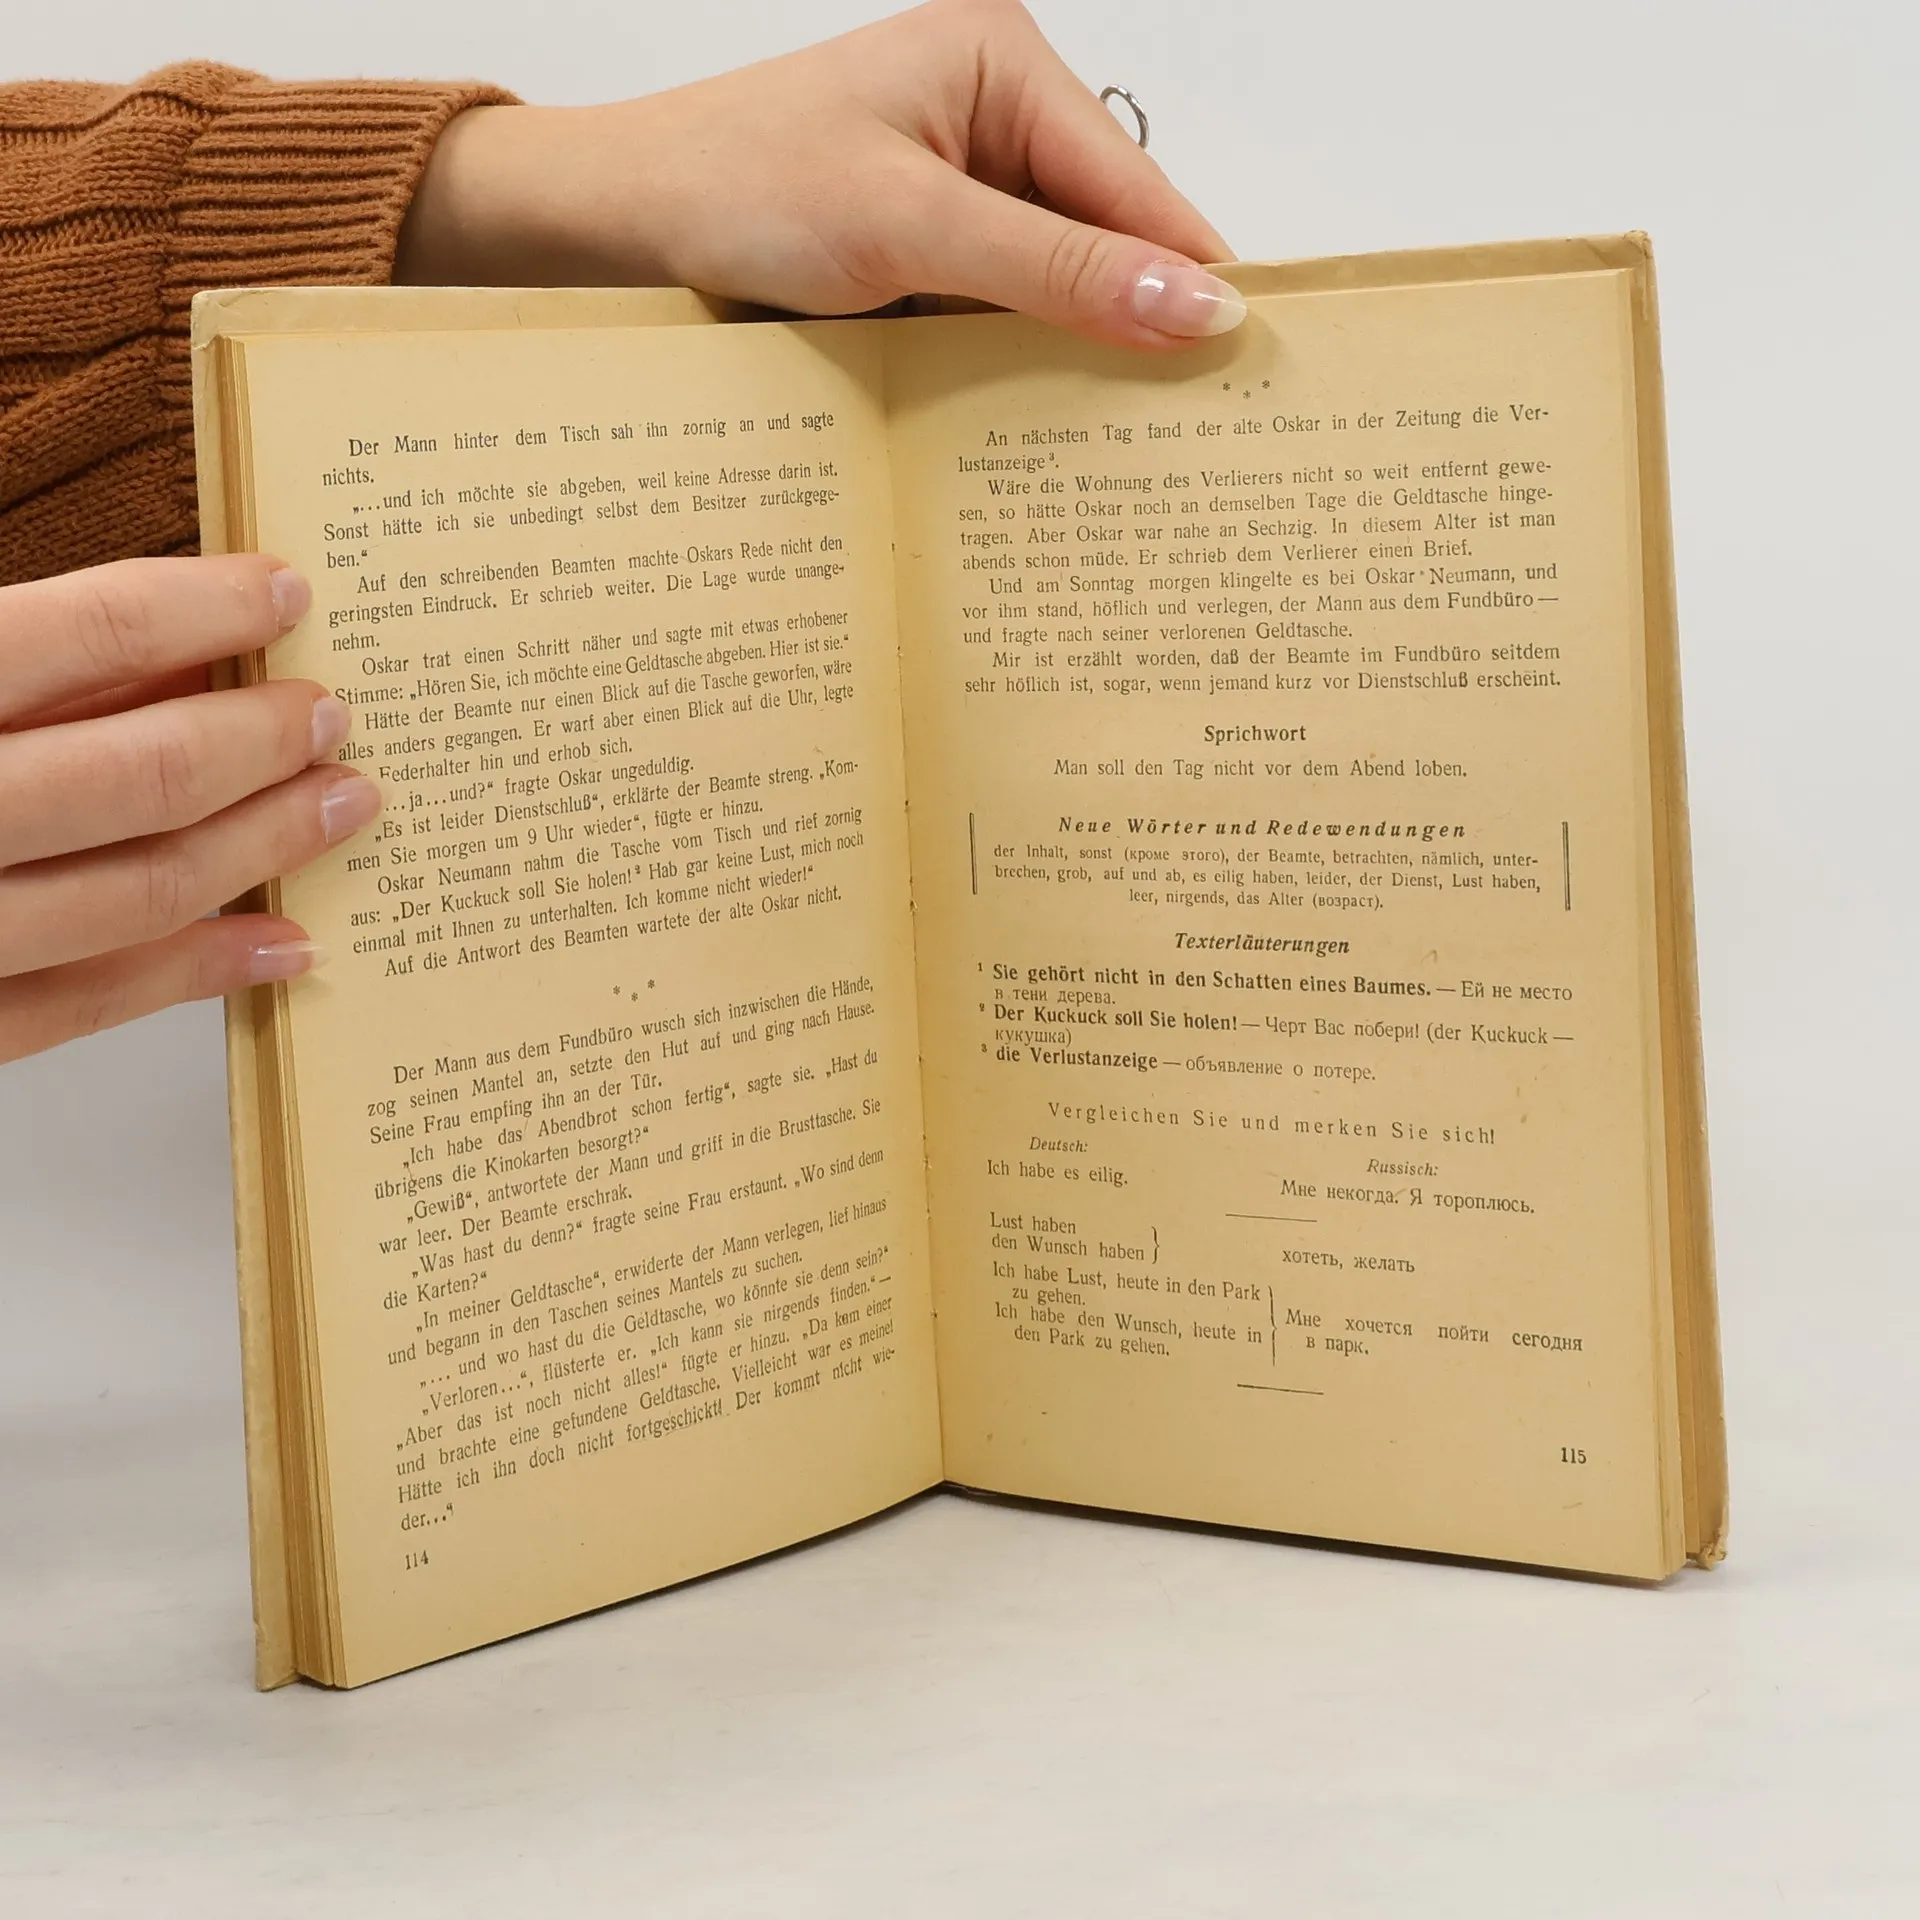 Der Mann hinter dem Tisch sah ihn zornig an und sagte
nichts.
„...und ich möchte sie abgeben, weil keine Adresse darin ist.
Sonst hätte ich sie unbedingt selbst dem Besitzer zurückgege-
ben.“
Auf den schreibenden Beamten machte Oskars Rede nicht den
geringsten Eindruck. Er schrieb weiter. Die Lage wurde unange-
nehm.
Oskar trat einen Schritt näher und sagte mit etwas erhobener
Stimme: „Hören Sie, ich möchte eine Geldtasche abgeben. Hier ist sie.“
Hätte der Beamte nur einen Blick auf die Tasche geworfen, wäre
alles anders gegangen. Er warf aber einen Blick auf die Uhr, legte
Federhalter hin und erhob sich.
...ja...und?“ fragte Oskar ungeduldig.
„Es ist leider Dienstschluß“, erklärte der Beamte streng. „Kom-
men Sie morgen um 9 Uhr wieder“, fügte er hinzu.
Oskar Neumann nahm die Tasche vom Tisch und rief zornig
aus: „Der Kuckuck soll Sie holen!² Hab gar keine Lust, mich noch
einmal mit Ihnen zu unterhalten. Ich komme nicht wieder!“
Auf die Antwort des Beamten wartete der alte Oskar nicht.
* * *
Der Mann aus dem Fundbüro wusch sich inzwischen die Hände,
zog seinen Mantel an, setzte den Hut auf und ging nach Hause.
Seine Frau empfing ihn an der Tür.
„Ich habe das Abendbrot schon fertig“, sagte sie. „Hast du
übrigens die Kinokarten besorgt?“
„Gewiß“, antwortete der Mann und griff in die Brusttasche. Sie
war leer. Der Beamte erschrak.
„Was hast du denn?“ fragte seine Frau erstaunt. „Wo sind denn
die Karten?“
„In meiner Geldtasche“, erwiderte der Mann verlegen, lief hinaus
und begann in den Taschen seines Mantels zu suchen.
„... und wo hast du die Geldtasche, wo könnte sie denn sein?“
„Verloren...“, flüsterte er. „Ich kann sie nirgends finden.“ —
„Aber das ist noch nicht alles!“ fügte er hinzu. „Da kam einer
und brachte eine gefundene Geldtasche. Vielleicht war es meine!
Hätte ich ihn doch nicht fortgeschickt! Der kommt nicht wie-
der...“
114
* * *
An nächsten Tag fand der alte Oskar in der Zeitung die Ver-
lustanzeige³.
Wäre die Wohnung des Verlierers nicht so weit entfernt gewe-
sen, so hätte Oskar noch an demselben Tage die Geldtasche hinge-
tragen. Aber Oskar war nahe an Sechzig. In diesem Alter ist man
abends schon müde. Er schrieb dem Verlierer einen Brief.
Und am Sonntag morgen klingelte es bei Oskar Neumann, und
vor ihm stand, höflich und verlegen, der Mann aus dem Fundbüro —
und fragte nach seiner verlorenen Geldtasche.
Mir ist erzählt worden, daß der Beamte im Fundbüro seitdem
sehr höflich ist, sogar, wenn jemand kurz vor Dienstschluß erscheint.
Sprichwort
Man soll den Tag nicht vor dem Abend loben.
Neue Wörter und Redewendungen
der Inhalt, sonst (кроме этого), der Beamte, betrachten, nämlich, unter-
brechen, grob, auf und ab, es eilig haben, leider, der Dienst, Lust haben,
leer, nirgends, das Alter (возраст).
Texterläuterungen
¹ Sie gehört nicht in den Schatten eines Baumes. — Ей не место
в тени дерева.
² Der Kuckuck soll Sie holen! — Черт Вас побери! (der Kuckuck —
кукушка)
³ die Verlustanzeige — объявление о потере.
Vergleichen Sie und merken Sie sich!
Deutsch:
Russisch:
Ich habe es eilig.
Мне некогда. Я тороплюсь.
Lust haben
den Wunsch haben }
хотеть, желать
Ich habe Lust, heute in den Park
zu gehen.
Ich habe den Wunsch, heute in
den Park zu gehen.
Мне хочется пойти сегодня
в парк.
115